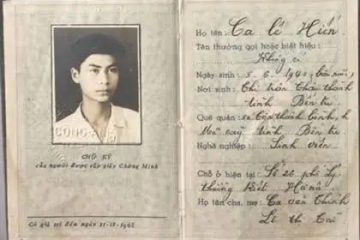 CÔNG AN
CHỮ KÝ
của người được cấp giấy Chứng Minh
Có giá trị đến ngày 31-12-196
Họ tên: Ca lê Hiến
Tên thường gọi hoặc biệt hiệu:
Không có
Ngày sinh: 5.6.1940
Nơi sinh: Thị trấn Châu thành
tỉnh Bến tre
Quê quán:
tỉnh Bến tre
Nghề nghiệp: Sinh viên
Chỗ ở hiện tại: Số 20 phố Lý
thường Kiệt Hà nội
Họ tên cha, mẹ: Ca văn Thỉnh
Lê thị